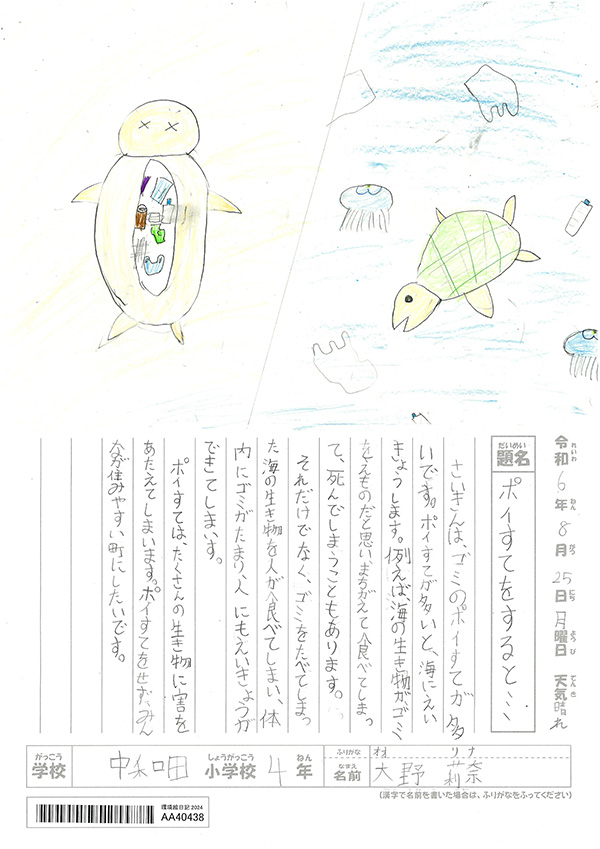 令和6年8月25日月曜日 天気晴れ
れいわ ねん がつ にち ようび てんき
だいめい
題名 ポイすてをすると…
さいきんは、ゴミのポイすてが多
いです。ポイすてが多いと、海にえい
きょうします。例えば、海の生き物が、ゴミ
をえものだと思いまちがえて食べてしまっ
て、死んでしまうこともあります。
それだけでなく、ゴミをたべてしまっ
た海の生き物を人が食べてしまい、体
内にゴミがたまり、人にもえいきょうが
できてしまいます。
ポイすては、たくさんの生き物に害を
あたえてしまいます。ポイすてをせず、みん
なが住みやすい町にしたいです。
がっこう しょうがっこう ねん ふりがな オオ リナ
学校 中和田 小学校 4年 なまえ 名前 大野 莉奈
(漢字で名前を書いた場合は、ふりがなをふってください)
環境絵日記2024
AA40438